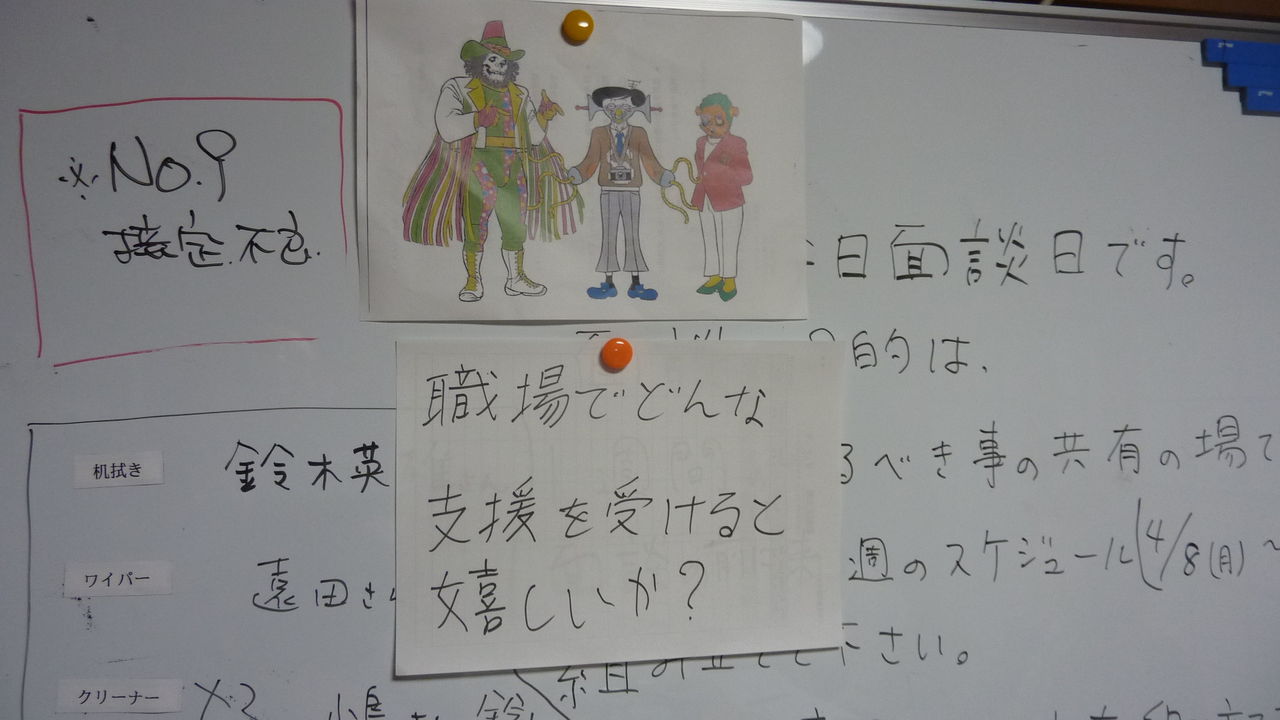 ※No.9
接定不良.
日面談日です。
目的は、
職場でどんな
支援を受けると
嬉しいか?
るべき事の共有の場で
週のスケジュール(4/8(月)~
組み立てて下さい。
机拭き 鈴木英
ワイパー 遠田さん
クリーナー ×2 小島さん 鈴